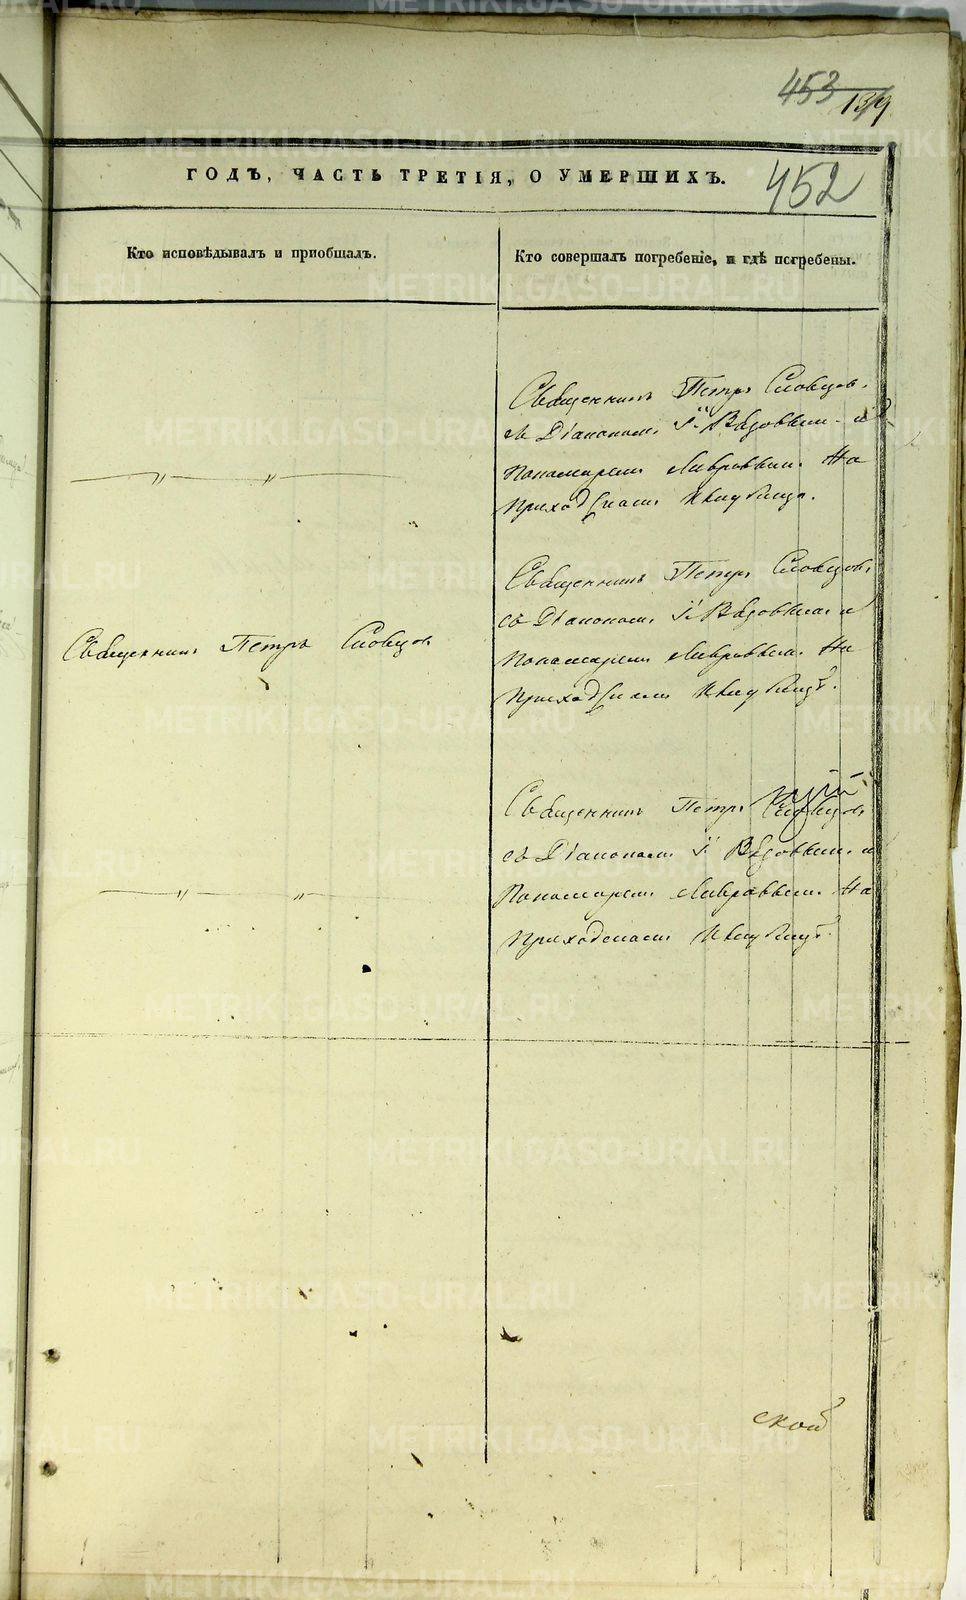 453
139
452
ГОДЪ, ЧАСТЬ ТРЕТІЯ, О УМЕРШИХЪ.
Кто исповѣдывалъ и пріобщалъ.
Кто совершалъ погребеніе, и гдѣ погребены.
Священникъ Петръ Словцовъ
съ Діакономъ І. Вѣдовымъ и
Пономаремъ Лавровымъ. На
приходскомъ кладбищѣ.
Священникъ Петръ Словцовъ
Священникъ Петръ Словцовъ
съ Діакономъ І. Вѣдовымъ и
Пономаремъ Лавровымъ. На
приходскомъ кладбищѣ.
Священникъ Петръ Словцовъ
съ Діакономъ І. Вѣдовымъ и
Пономаремъ Лавровымъ. На
приходскомъ кладбищѣ.
ской
METRIKI.GASO-URAL.RU